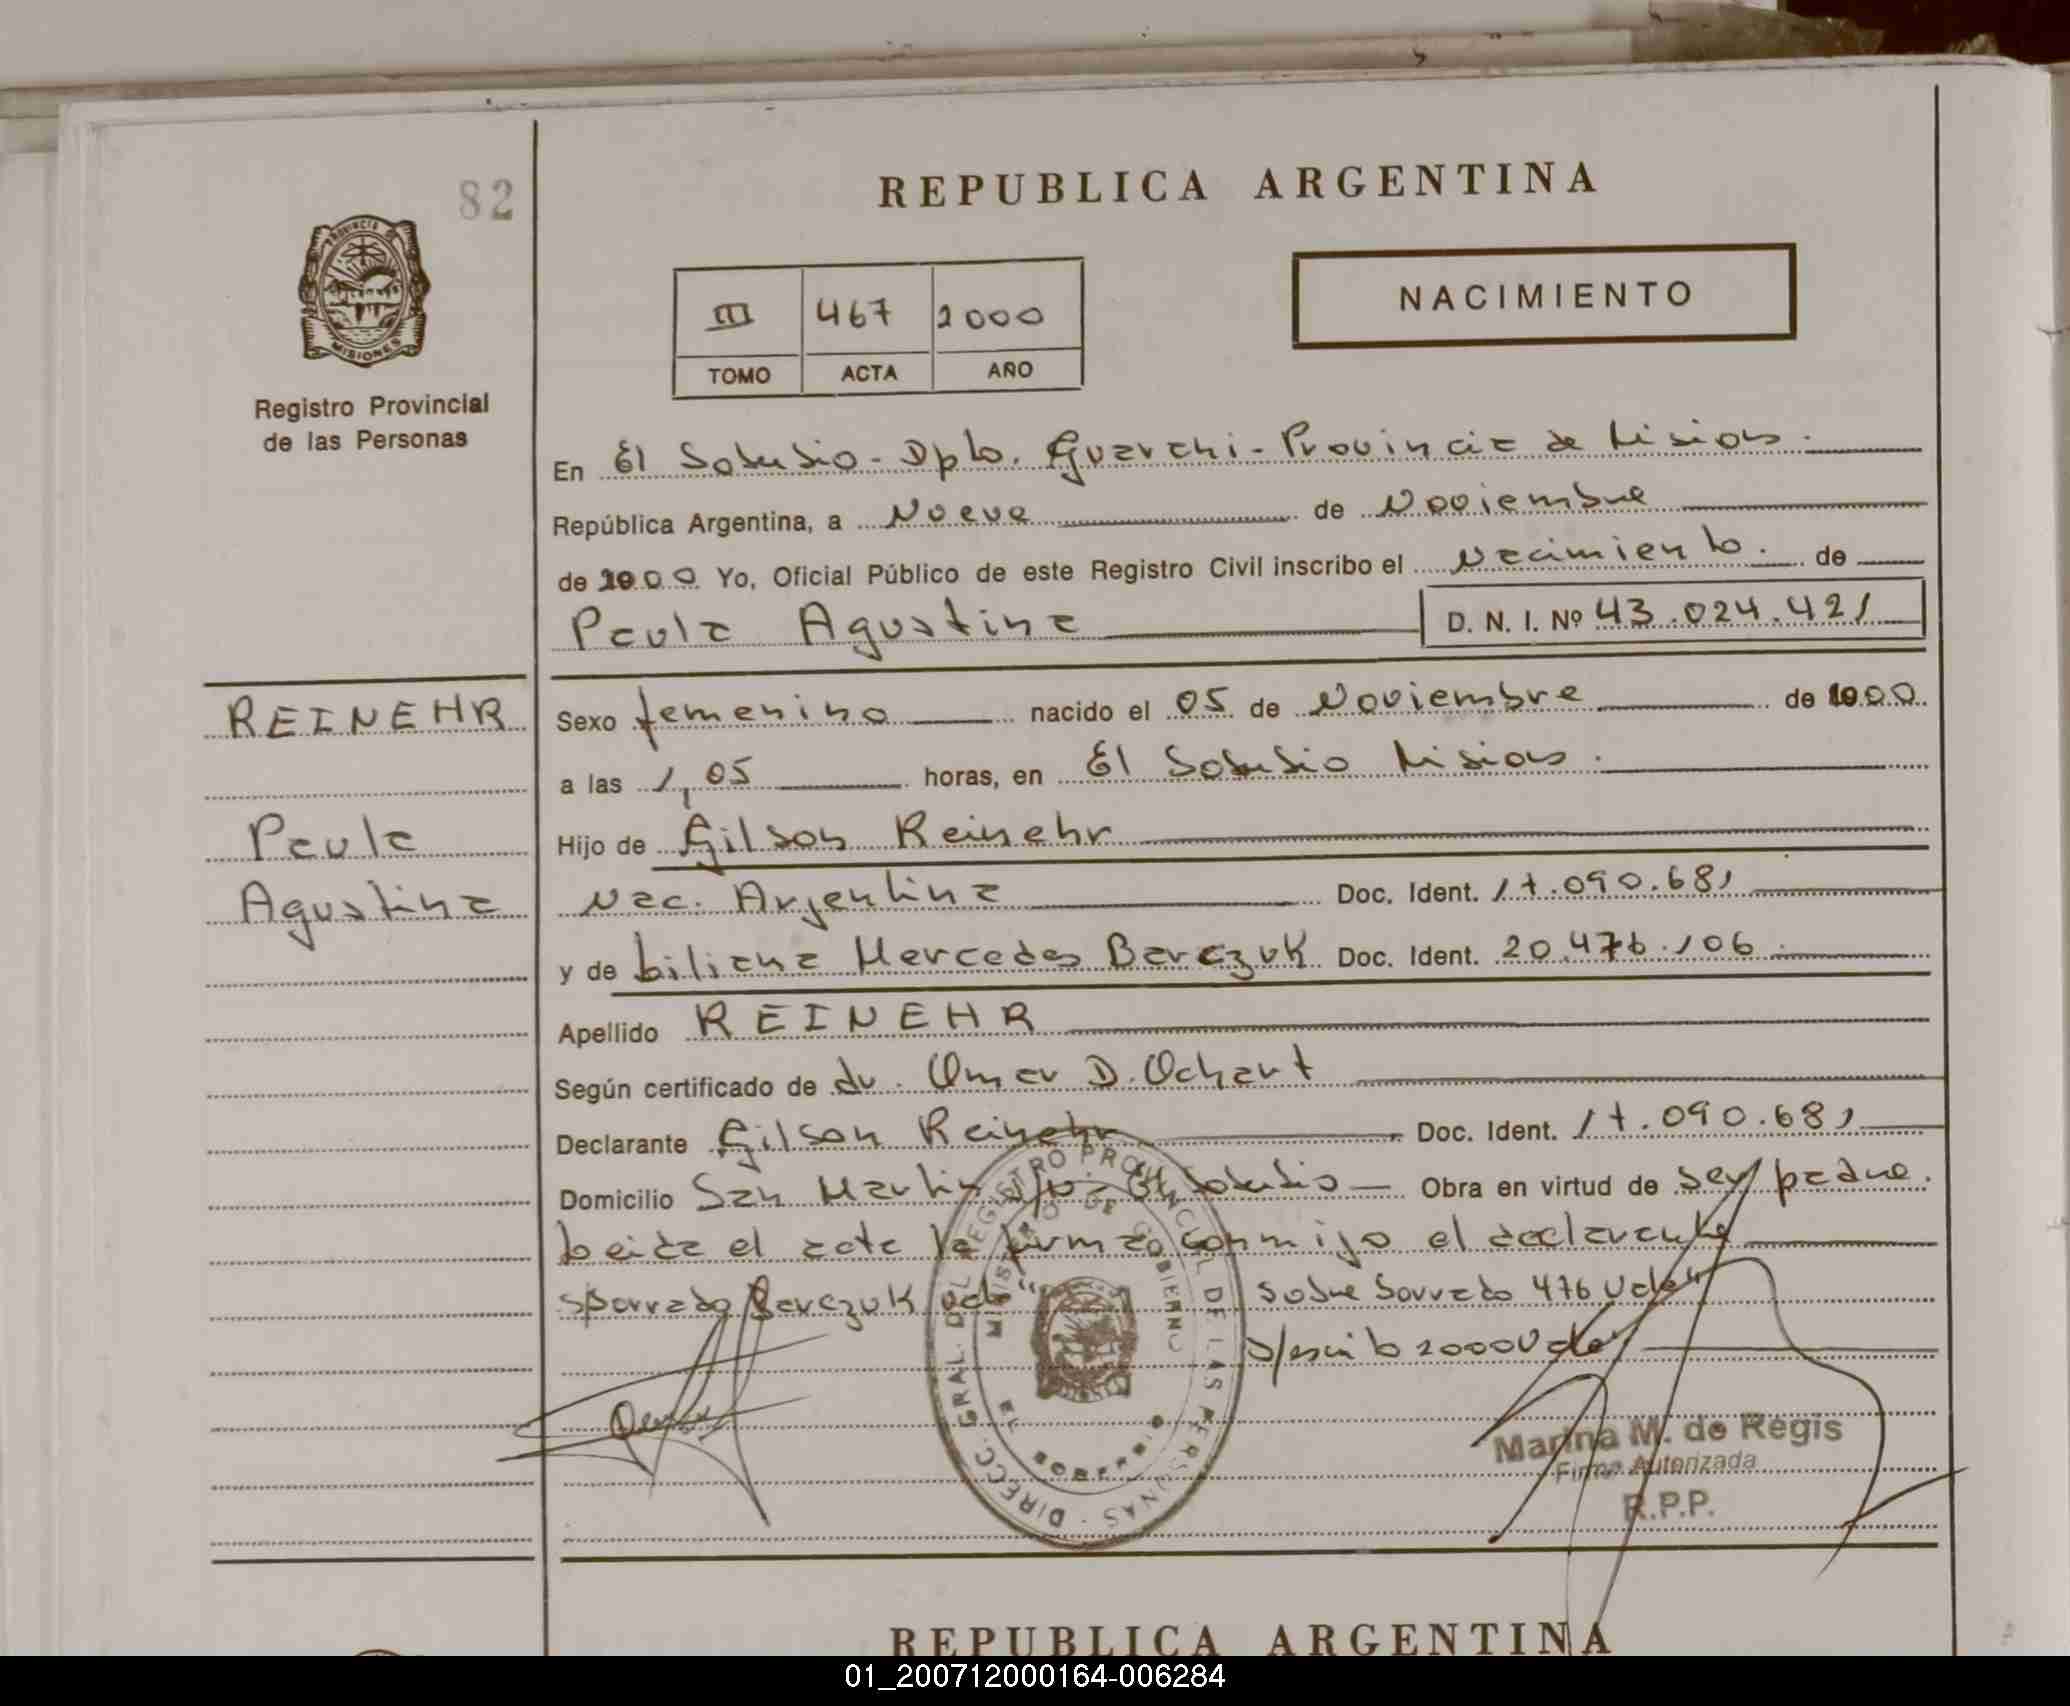 82
REPUBLICA ARGENTINA
PROVINCIA DE
MISIONES
Registro Provincial
de las Personas
III 467 2000
TOMO ACTA AÑO
NACIMIENTO
En El Soberbio - Dpto. Guarani - Provincia de Misiones.
República Argentina, a Nueve de Noviembre
de 2000 Yo, Oficial Público de este Registro Civil inscribo el Nacimiento. de
Paula Agustina D. N. I. Nº 43.024.421
REINEHR
Paula
Agustina
Sexo femenino nacido el 05 de Noviembre de 2000
a las 1,05 horas, en El Soberbio Misiones.
Hijo de Gilson Reinehr
Nac. Argentina Doc. Ident. 17.090.681
y de Liliana Mercedes Barczuk Doc. Ident. 20.476.106
Apellido REINEHR
Según certificado de dr. Omar D. Ochart
Declarante Gilson Reinehr Doc. Ident. 17.090.681
Domicilio San Martin s/n. El Soberbio Obra en virtud de ser padre.
Leida el acta la firma conmigo el declarante
S/borrado Barczuk Vale" Sobre borrado 476 Vale"
S/escrito 2000 Vale"
DIRECC. GRAL. DEL REGISTRO PROVINCIAL DE LAS PERSONAS
MINISTERIO DE GOBIERNO
EL SOBERBIO
Marina M. de Regis
Firma Autorizada
R.P.P.
REPUBLICA ARGENTINA
01_200712000164-006284